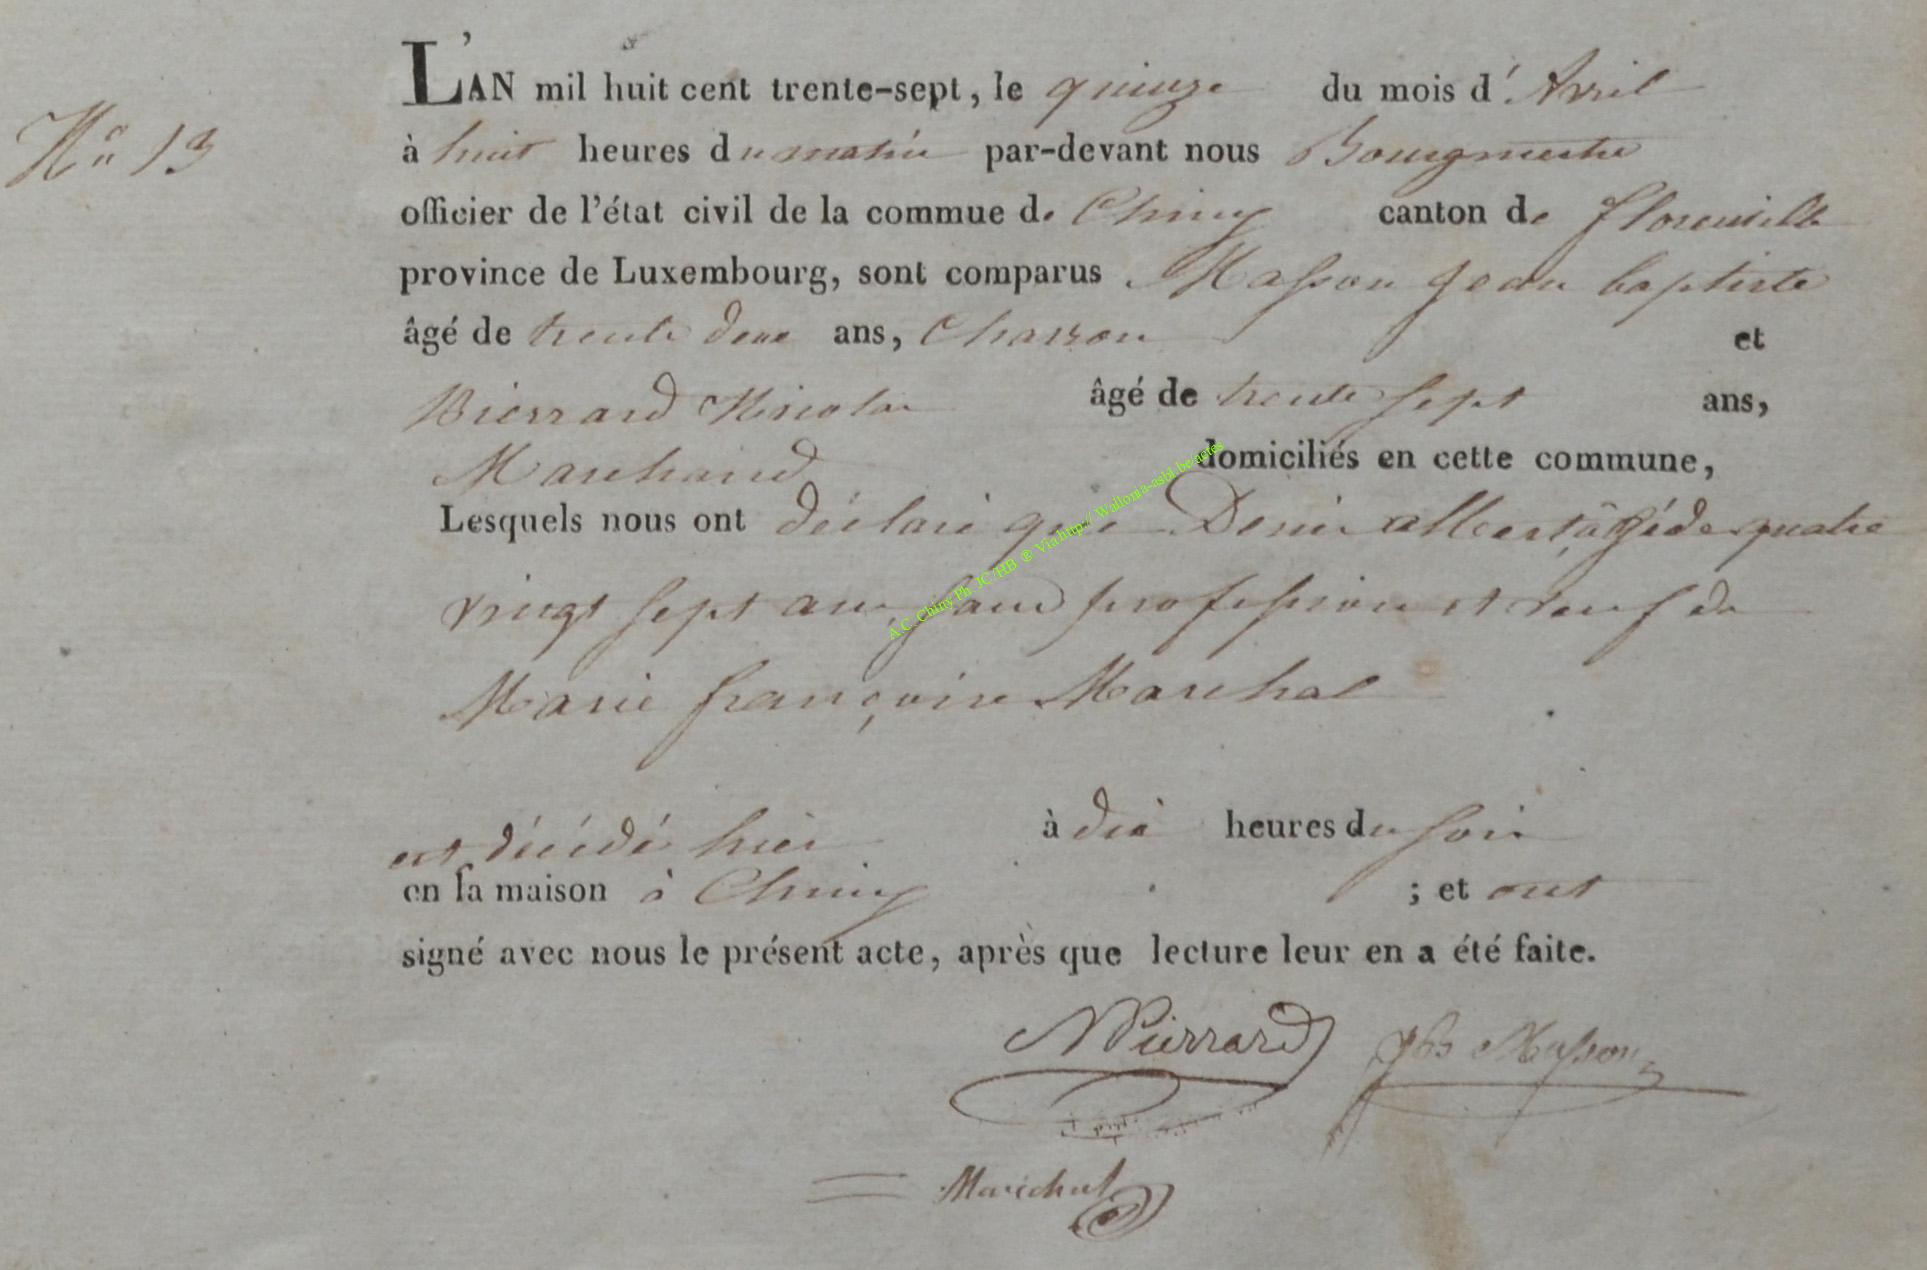 L'AN mil huit cent trente-sept, le quinze du mois d'Avril
N° 13
à huit heures du matin par-devant nous Bourgmestre
officier de l'état civil de la commue de Chiny canton de florenville
province de Luxembourg, sont comparus Masson Jean baptiste
âgé de trente deux ans, Charron et
Pierrard Nicolas âgé de trente sept ans,
Marchand domiciliés en cette commune,
Lesquels nous ont déclaré que Denis albert, âgé de quatre
vingt sept ans, sans profession et veuf de
Marie françoise Marchal
est décédé hier à dix heures du soir
en sa maison à Chiny ; et ont
signé avec nous le présent acte, après que lecture leur en a été faite.
NPierrard JB Masson
Maréchal
A.C. Chiny Ph. JC/HB ® Via http:// Wallonia-asbl.be/actes